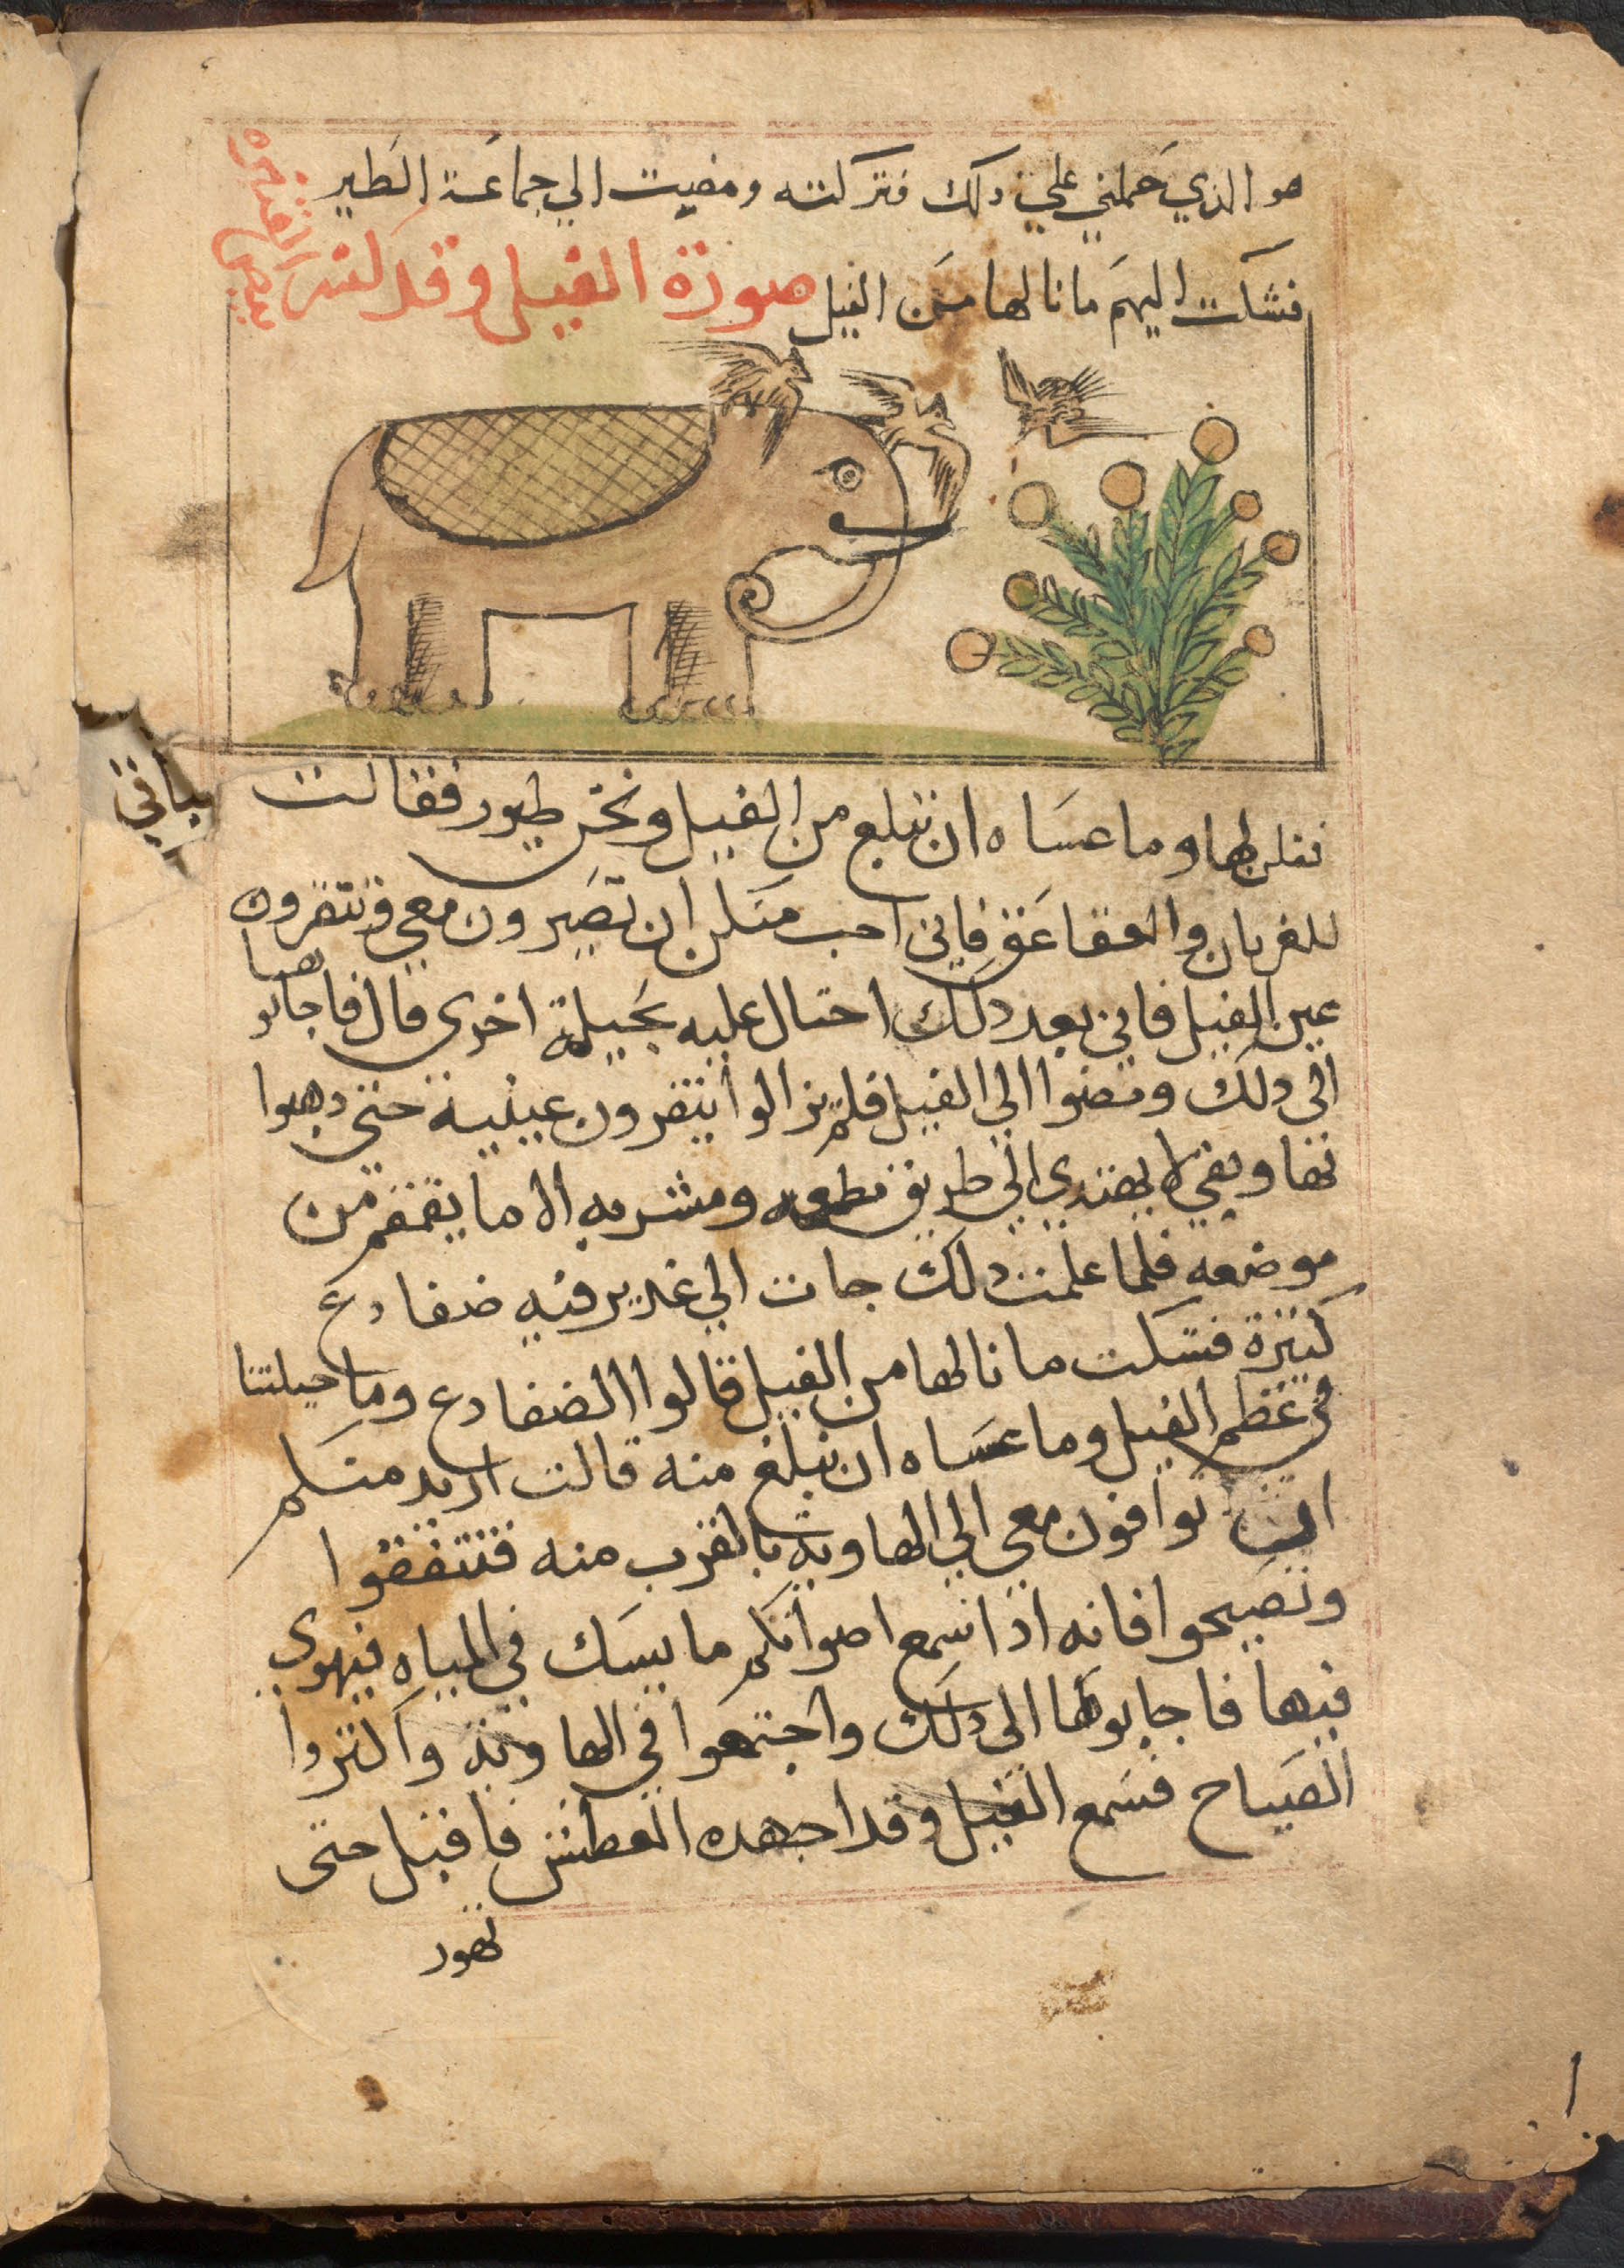 هو الذي حملني علي دلك فتركته ومضيت الي جماعة الطير
فشكت اليهم ما نالها من الفيل صورة الفيل وقد كسر
بيض القنبره
فقلن لها وما عساه ان نبلغ من الفيل ونحن طيور فقالت
للغربان والعقاعق فاني احب منكن ان تصيرون معي فتنقرون
عين الفيل فاني بعد دلك احتال عليه بحيلة اخري قال فاجابوها
الي دلك ومضوا الي الفيل فلم يزالوا ينقرون عينيه حتي دهبوا
بها وبقي لا يهتدي الي طريق مطعمه ومشربه الا ما يقمقم من
موضعه فلما علمت دلك جات الي غدير فيه ضفادع
كثيرة فشكت ما نالها من الفيل قالوا الضفادع وما حيلتنا
في عظم الفيل وما عساه ان نبلغ منه قالت اريد منكم
ان توافون معي الي الهاوية بالقرب منه فتنققوا
وتصيحوا فانه اذا سمع اصواتكم ما يسك في المياه فيهوي
فيها فاجابوها الي دلك واجتمعوا في الهاوية واكثروا
الصياح فسمع الفيل وقد اجهده العطش فاقبل حتى